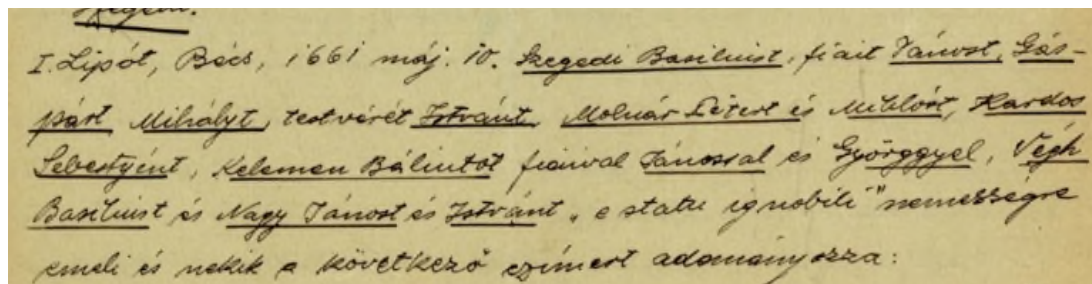 Szegedi.
I. Lipót, Bécs, 1661 máj. 10. Szegedi Basiliust, fiait Jánost, Gás-
párt Mihályt, testvérét Istvánt, Molnár Pétert és Miklóst, Kardos
Sebestyént, Kelemen Bálintot fiaival Jánossal és Györggyel, Végh
Basiliust és Nagy Jánost és Istvánt „e statu ignobili" nemességre
emeli és nekik a következő czímert adományozza: